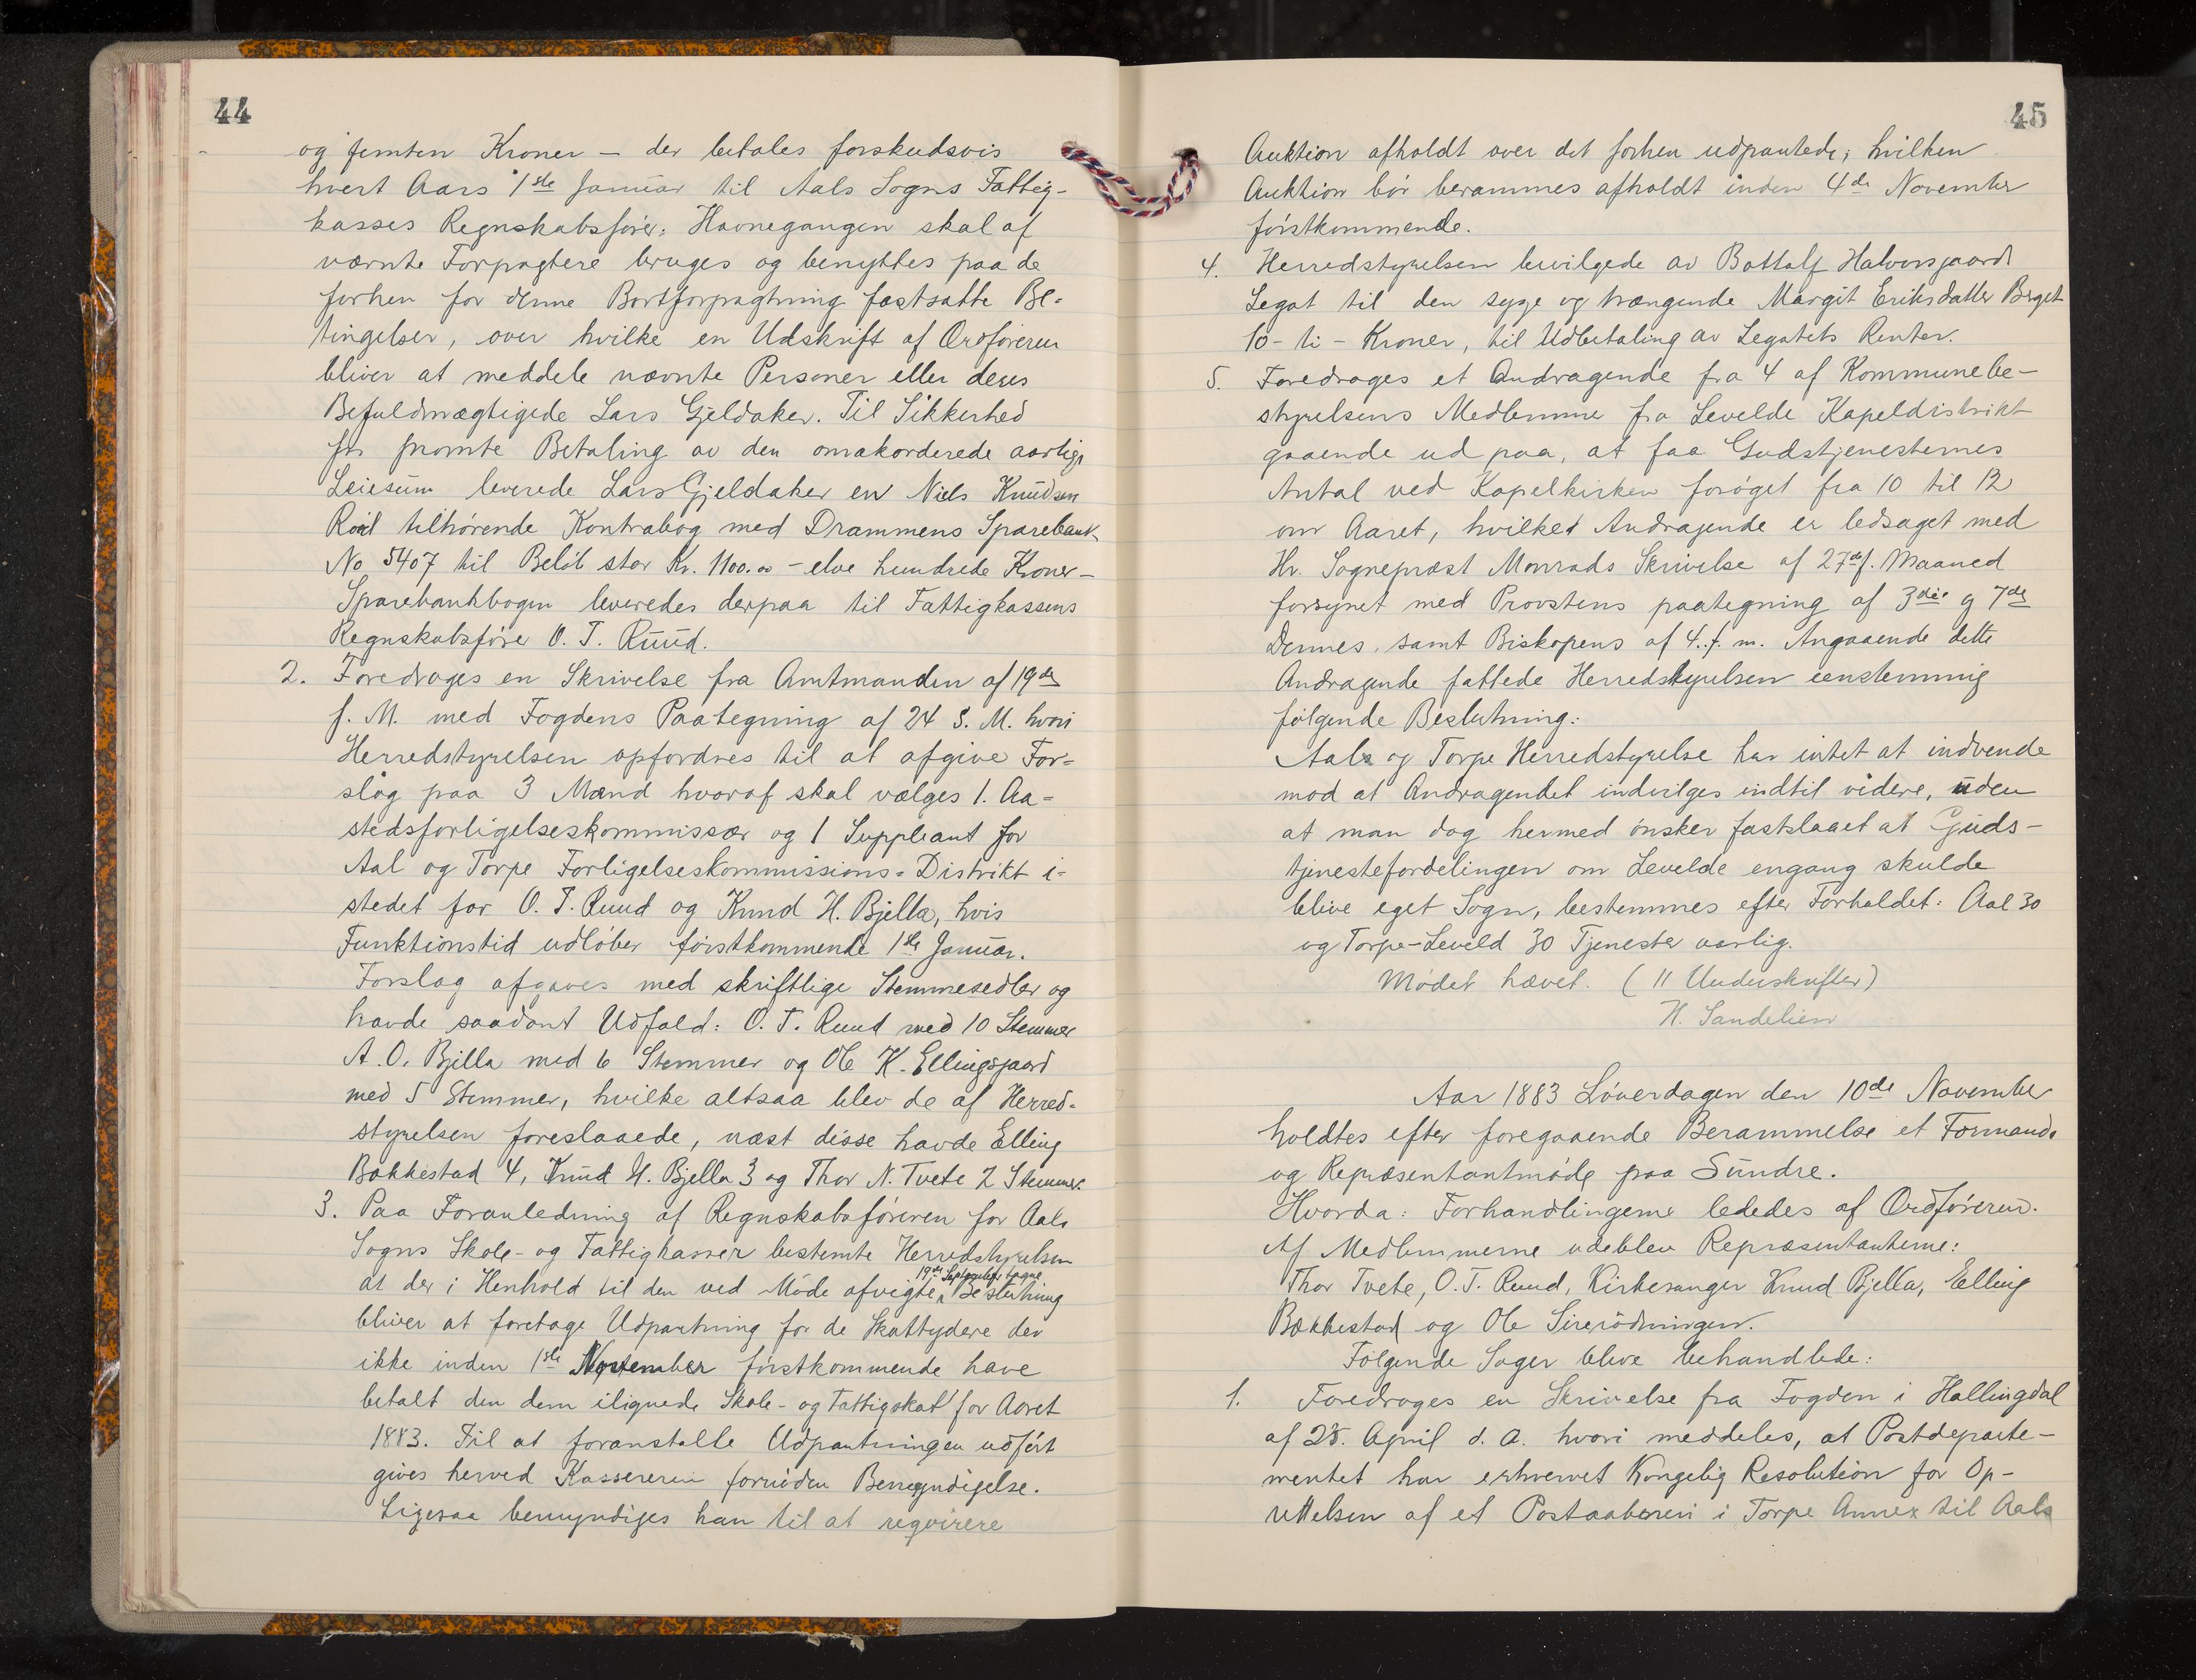 44
og femten Kroner — der betales forskudsvis
hvert Aars 1ste Januar til Aals Sogns Fattig-
kasses Regnskabsfører. Havnegangen skal af
nævnte Forpagtere bruges og benyttes paa de
forhen for denne Bortforpagtning fastsatte Be-
tingelser, over hvilke en Udskrift af Ordføreren
bliver at meddele nævnte Personer eller deres
Befuldmægtigede Lars Gjeldaker. Til Sikkerhed
for promte Betaling av den omakorderede aarlige
Leiesum leverede Lars Gjeldaker en Niels Knudsen
tilhørende Kontrabog med Drammens Sparebank
No 5407 til Beløb stor Kr. 1100.00 - elve hundrede Kroner -
Sparebankbogen leveredes derpaa til Fattigkassens
Regnskabsfører O. T. Ruud.
2. Foredroges en Skrivelse fra Amtmanden af 19de
f. M. med Fogdens Paategning af 24 s. M. hvori
Herredstyrelsen opfordres til at afgive For-
slag paa 3 Mænd hvoraf skal vælges 1. Aa-
stedsforligelseskommissær og 1 Suppleant for
Aal og Torpe Forligelseskommissions-Distrikt i-
stedet for O. T. Ruud og Knud H. Bjella, hvis
Funktionstid udløber førstkommende 1ste Januar.
Forslag afgaves med skriftlige Stemmesedler og
havde saadant Udfald: O. T. Ruud med 10 Stemmer
A. O. Bjella med 6 Stemmer og Ole K. Ellingsgaard
med 5 Stemmer, hvilke altsaa blev de af Herred-
styrelsen foreslaaede, næst disse havde Elling
Bakkestad 4, Knud H. Bjella 3 og Thor N. Tvete 2 Stemmer.
3. Paa Foranledning af Regnskabsføreren for Aals
Sogns Skole- og Fattigkasser bestemte Herredstyrelsen
19de September tagne
at der i Henhold til den ved Møde afvigte Beslutning
bliver at foretage Udpantning for de Skattydere der
ikke inden 1ste November førstkommende have
betalt den dem ilignede Skole- og Fattigskat for Aaret
1883. Til at foranstalle Udpantningen udført
gives herved Kassereren fornøden Bemyndigelse.
Ligesaa bemyndiges han til at reqvirere
45
Auktion afholdt over det forhen udpantede; hvilken
Auktion bør berammes afholdt inden 4de November
førstkommende.
4. Herredstyrelsen bevilgede av Bottolf Halvorsgaards
Legat til den syge og trængende Margit Eriksdatter Berget
10 - ti - Kroner, til Udbetaling av Legatets Renter.
5. Foredroges et Andragende fra 4 af Kommunebe-
styrelsens Medlemme fra Levelde Kapeldistrikt
gaaende ud paa, at faa Gudstjenesternes
Antal ved Kapelkirken forøget fra 10 til 12
om Aaret, hvilket Andragende er ledsaget med
Hr. Sognepræst Monrads Skrivelse af 27de f. Maaned
forsynet med Provstens paategning af 3die og 7de
Dennes, samt Biskopens af 4. f. m. Angaaende dette
Andragende fattede Herredstyrelsen eenstemmig
følgende Beslutning:
Aals og Torpe Herredstyrelse har intet at indvende
mod at Andragendet indvilges indtil videre, uden
at man dog hermed ønsker fastslaaet at Guds-
tjenestefordelingen om Levelde engang skulde
blive eget Sogn, bestemmes efter Forholdet: Aal 30
og Torpe-Leveld 30 Tjenester aarlig.
Mødet hævet. (11 Underskrifter)
H. Sandelien
Aar 1883 Løverdagen den 10de November
holdtes efter foregaaende Berammelse et Formands
og Repræsentantmøde paa Sundre.
Hvorda: Forhandlingerne lededes af Ordføreren.
Af Medlemmerne udeblev Repræsentanterne:
Thor Tvete, O. T. Ruud, Kirkesanger Knud Bjella, Elling
Bækkestad og Ole
Følgende Sager bleve behandlede:
1. Foredroges en Skrivelse fra Fogden i Hallingdal
af 25. April d. A. hvori meddeles, at Postdeparte-
mentet har erhvervet Kongelig Resolution for Op-
rettelsen af et Postaabneri i Torpe Annex til Aals